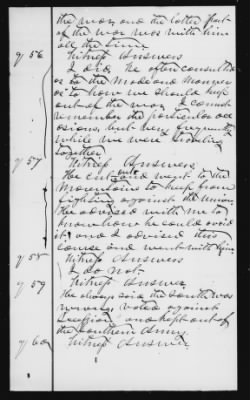 the war, and the latter part
of the war was with him
all the time
q 56 Witness Answers
I did, He often consulted
as to the mode and manner
as to how we should keep
out of the war I cannot
remember the particular oc
casions, but very frequently
while we were scouting
together
q 57 Witness Answers
He cut out and went to the
Mountains to keep from
fighting against the Union
He advised with me to
know how he could avoid
it and I advised this
course and went with him
q 58 Witness Answers
I do not
q 59 Witness Answer
He always said the South was
wrong, voted against
Secession and kept out of
the Southern Army
q 60 Witness Answer